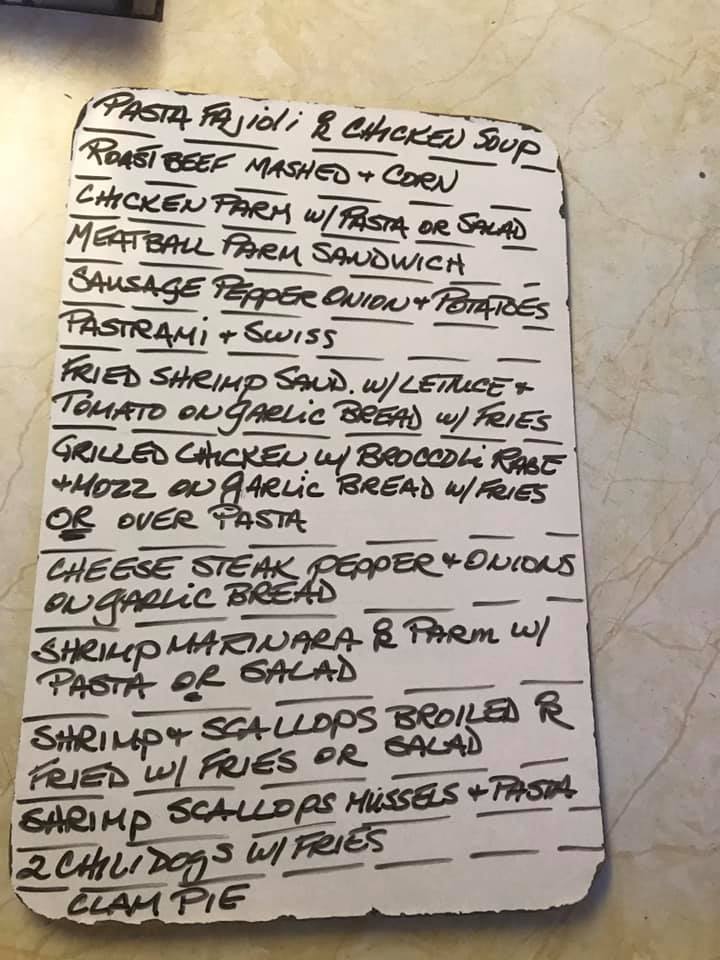 PASTA FAJIOLI OR CHICKEN SOUP
ROAST BEEF MASHED + CORN
CHICKEN PARM W/ PASTA OR SALAD
MEATBALL PARM SANDWICH
SAUSAGE PEPPER ONION + POTATOES
PASTRAMI + SWISS
FRIED SHRIMP SAND. W/ LETTUCE +
TOMATO ON GARLIC BREAD W/ FRIES
GRILLED CHICKEN W/ BROCCOLI RABE
+ MOZZ ON GARLIC BREAD W/ FRIES
OR OVER PASTA
CHEESE STEAK PEPPER + ONIONS
ON GARLIC BREAD
SHRIMP MARINARA OR PARM W/
PASTA OR SALAD
SHRIMP + SCALLOPS BROILED OR
FRIED W/ FRIES OR SALAD
SHRIMP SCALLOPS MUSSELS + PASTA
2 CHILI DOGS W/ FRIES
CLAM PIE